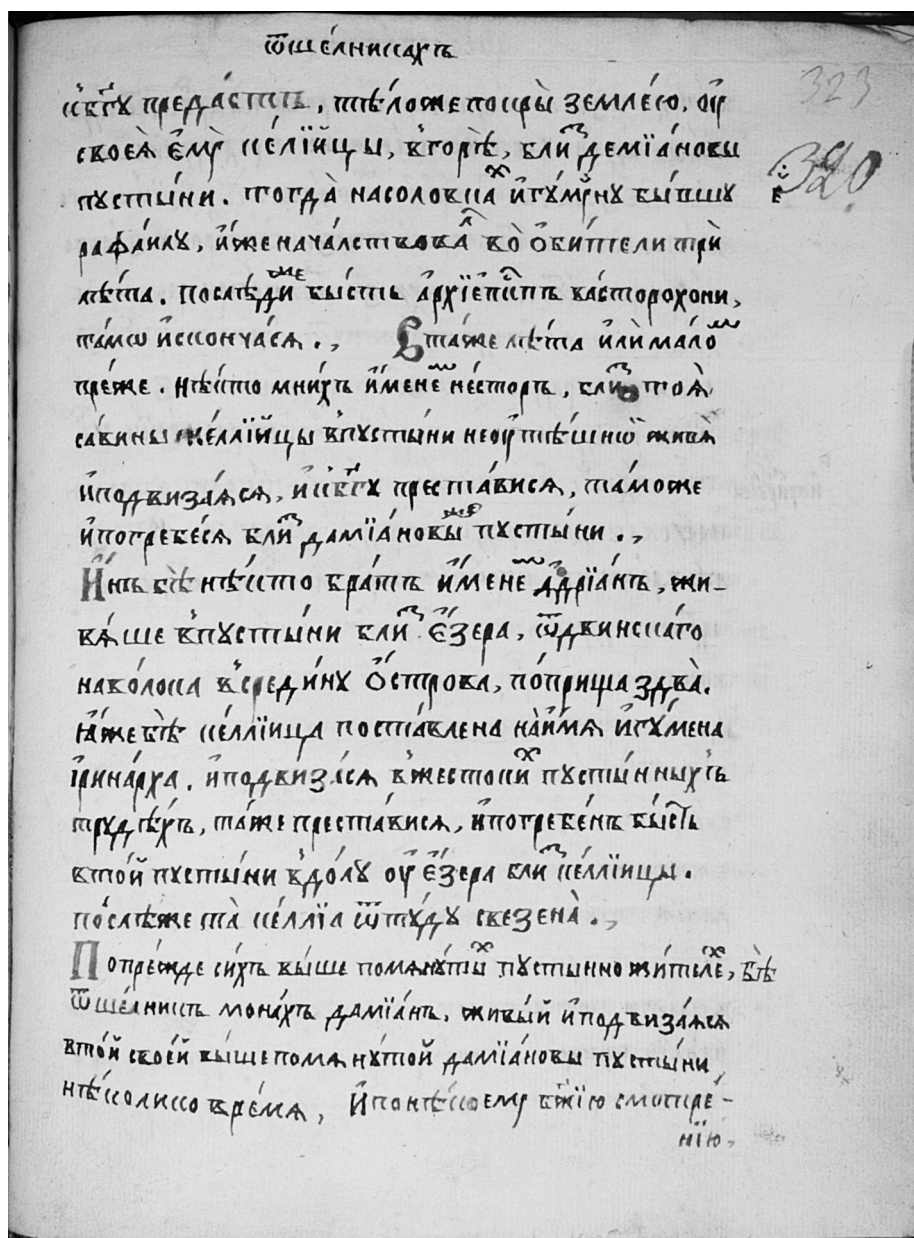 ѿшелникахъ
323
къбг҃у предастъ, тѣло же покры землею. оу
своея емꙋ келїйцы, в горѣ, близ демїановы
пустыни. тогда на соловках игумену бывшу
рафаилу, иже началствовал во обители три
лѣта. послѣди же бысть архїепспъ в асторохони,
тамѡ и скончася.
Въ таже лѣта или мало
преже. нѣкто мнихъ именем несторъ, близ тоя
савины келлїйцы в пустыни неоутѣшнѡ живя
и подвизаяся, и къбг҃у преставися, тамо же
и погребеся близ дамїановы же пустыни.
Инъ бѣ нѣкто братъ именем адрїанъ, жи-
вяше в пустыни близ езера, ѿ двинскаго
наволока в средину острова, поприща з два.
ꙗже бѣ келлїица поставлена на имя игумена
їринарха. и подвизася в жестоких пустынныхъ
трудѣхъ, таже преставися, и погребенъ бысть
в той пустыни в долу оу езера близ келлїицы.
послѣже та келлїа ѿтуду свезена.
Попрежде сихъ выше помянутых пустынножителех, бѣ
ѿшелникъ монахъ дамїанъ. живый и подвизаяся
в той своей выше помянутой дамїановы пустыни
нѣколико время, и по нѣкоему бж҃їю смотре-
нїю,